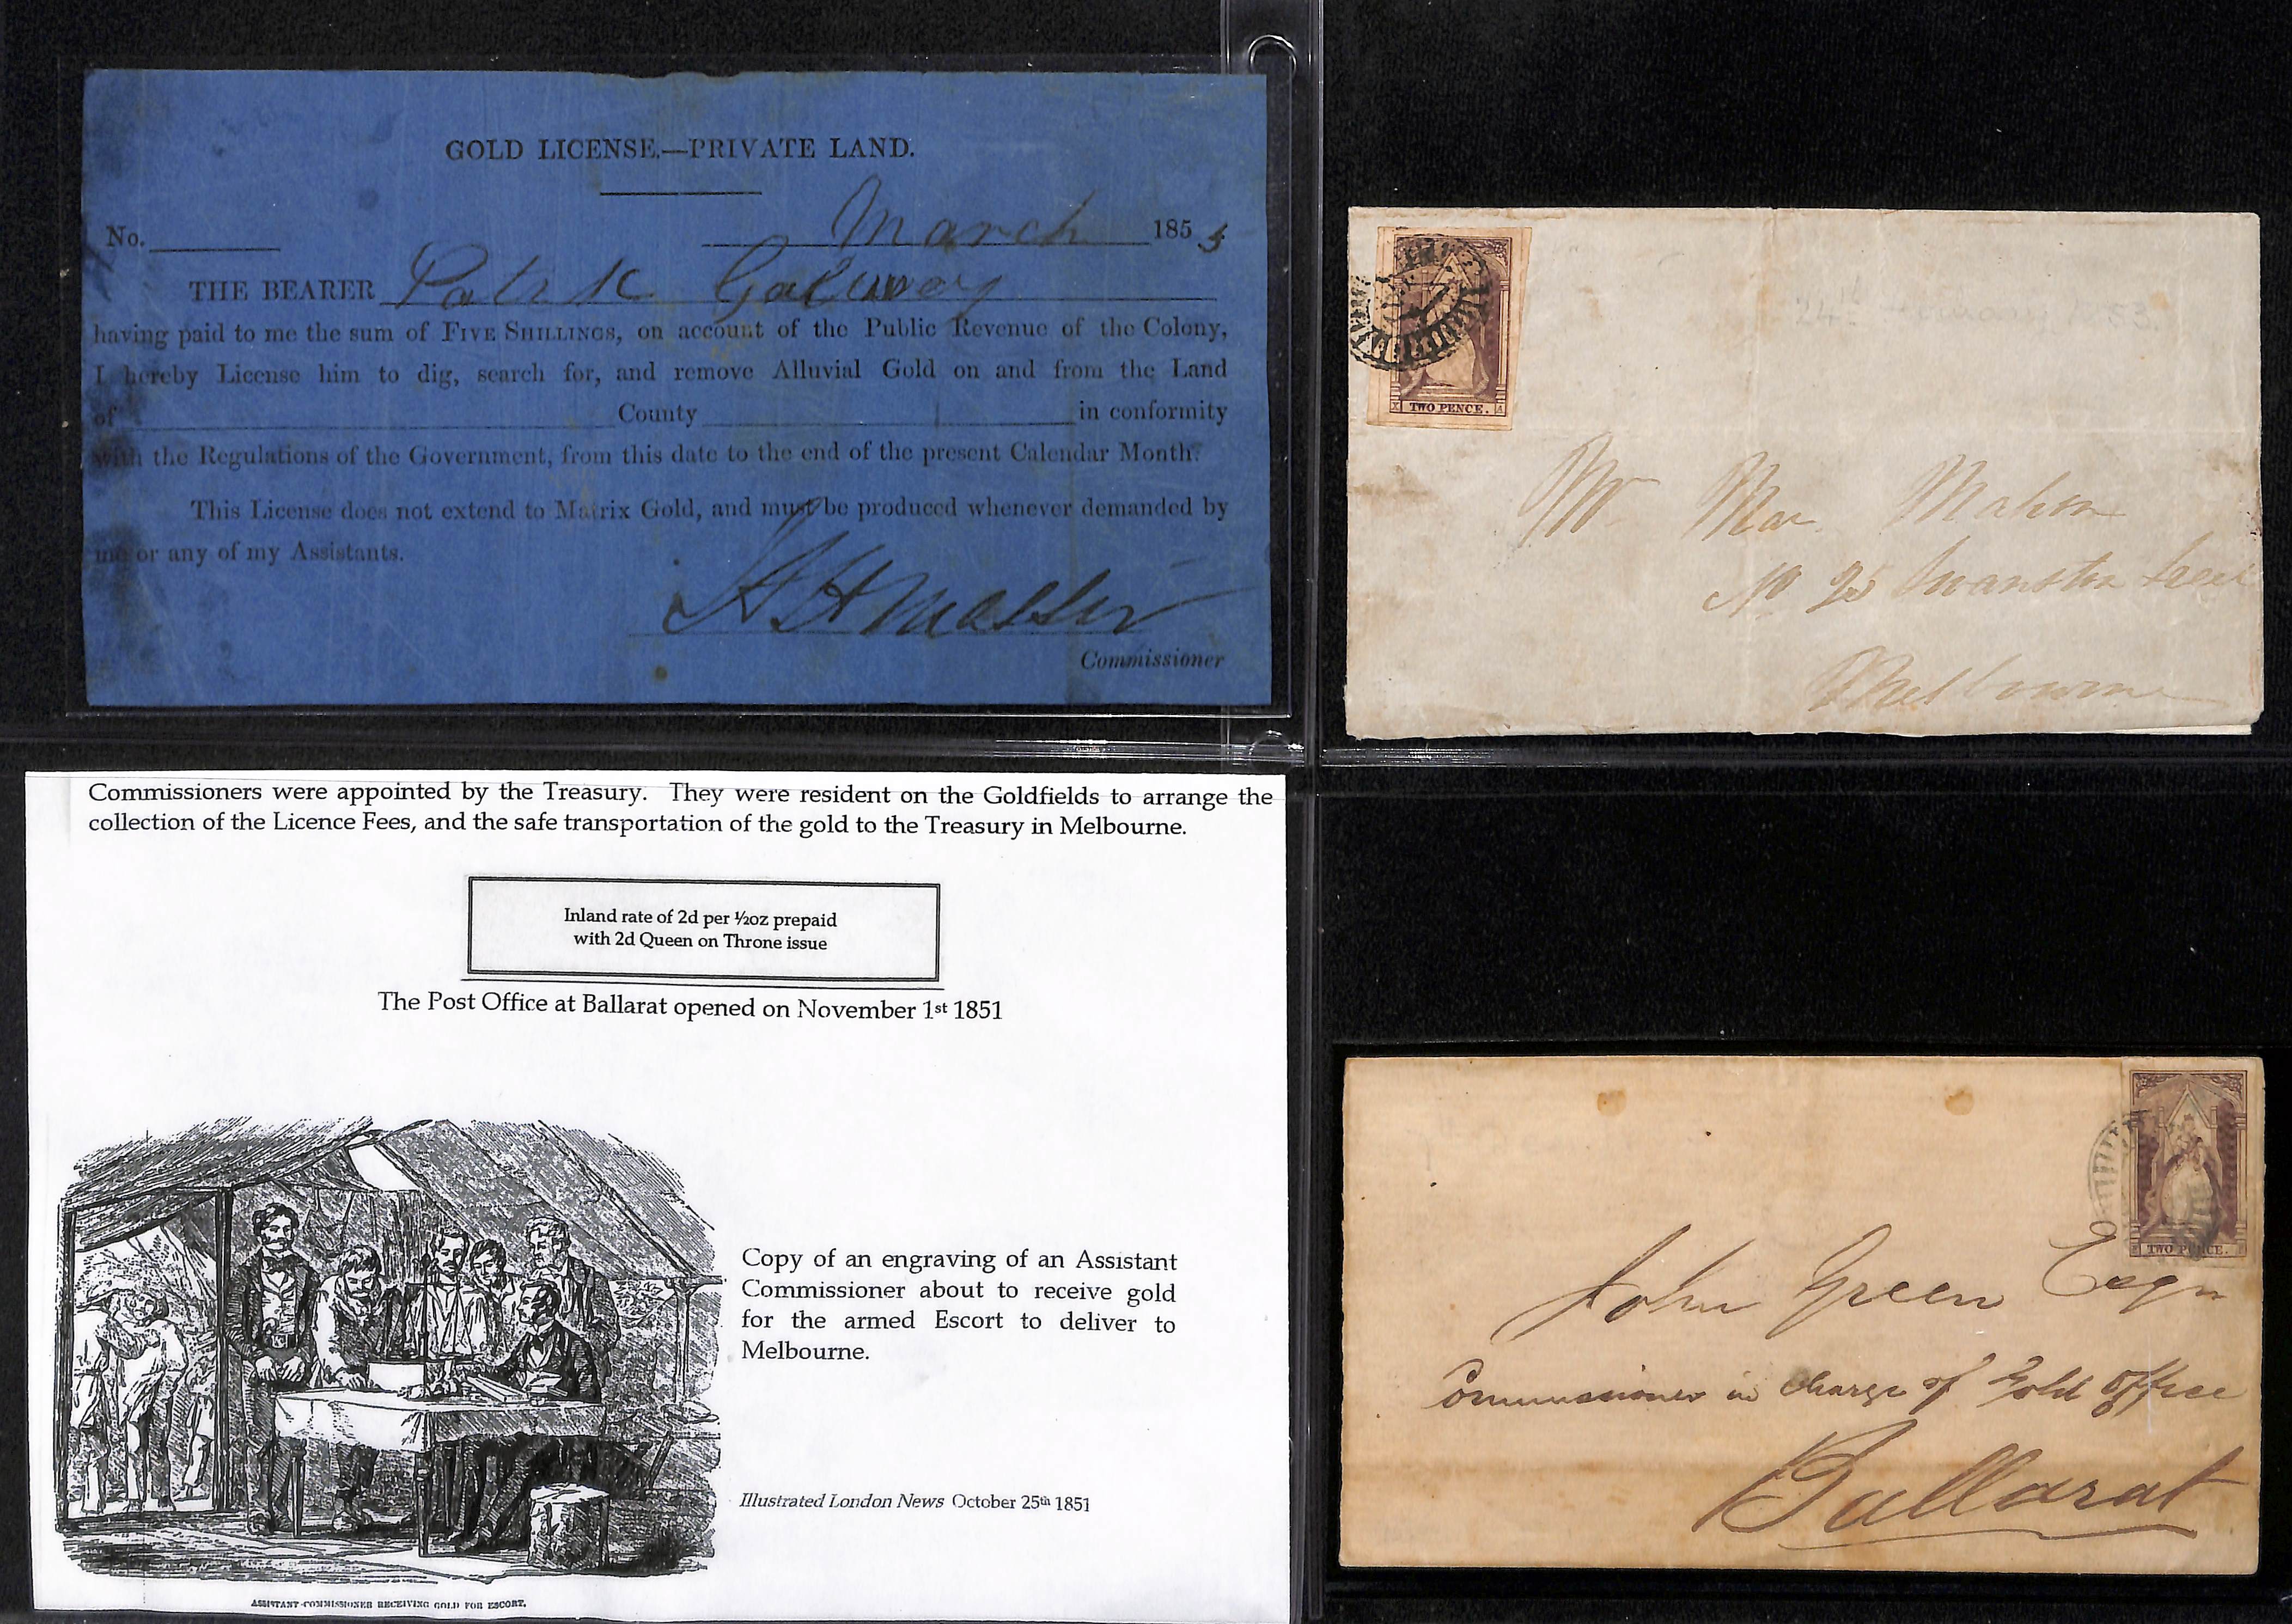 GOLD LICENSE.—PRIVATE LAND.
No. March 1853
THE BEARER Patrk Galway
having paid to me the sum of FIVE SHILLINGS, on account of the Public Revenue of the Colony,
I hereby License him to dig, search for, and remove Alluvial Gold on and from the Land
of County in conformity
with the Regulations of the Government, from this date to the end of the present Calendar Month.
This License does not extend to Matrix Gold, and must be produced whenever demanded by
me or any of my Assistants.
Commissioner
TWO PENCE.
Mr Mac Mahon
No 25 Swanston Street
Melbourne
Commissioners were appointed by the Treasury. They were resident on the Goldfields to arrange the
collection of the Licence Fees, and the safe transportation of the gold to the Treasury in Melbourne.
Inland rate of 2d per ½oz prepaid
with 2d Queen on Throne issue
The Post Office at Ballarat opened on November 1st 1851
Copy of an engraving of an Assistant
Commissioner about to receive gold
for the armed Escort to deliver to
Melbourne.
Illustrated London News October 25th 1851
ASSISTANT-COMMISSIONER RECEIVING GOLD FOR ESCORT.
TWO PENCE.
John Green Esqr
Commissioner in Charge of Gold Office
Ballarat